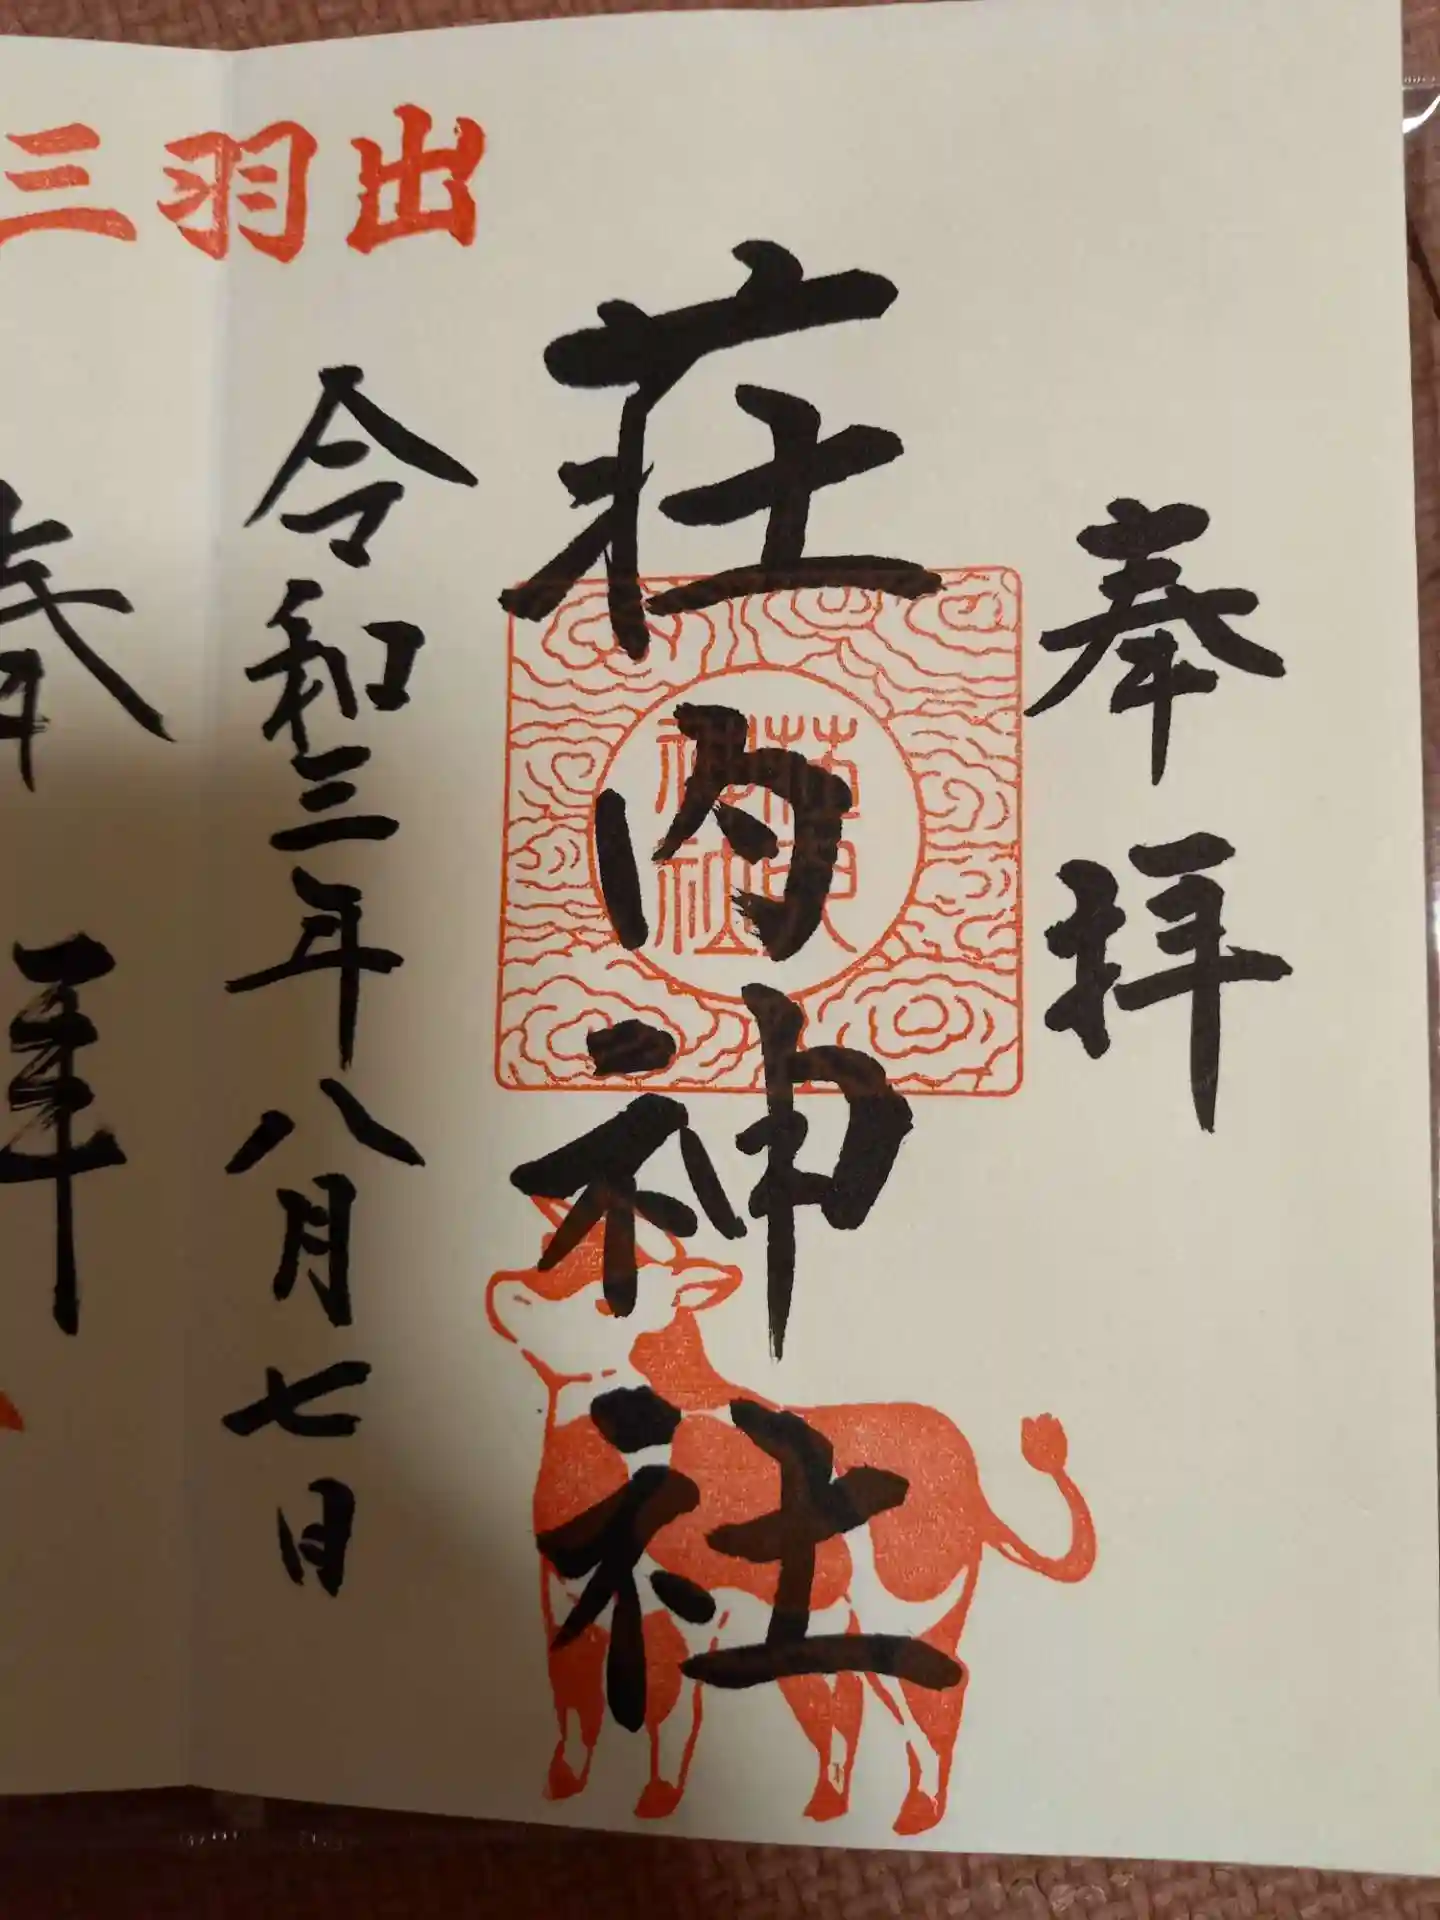 奉拝
荘内神社
荘内神社
令和三年八月七日
出羽三
奉拝